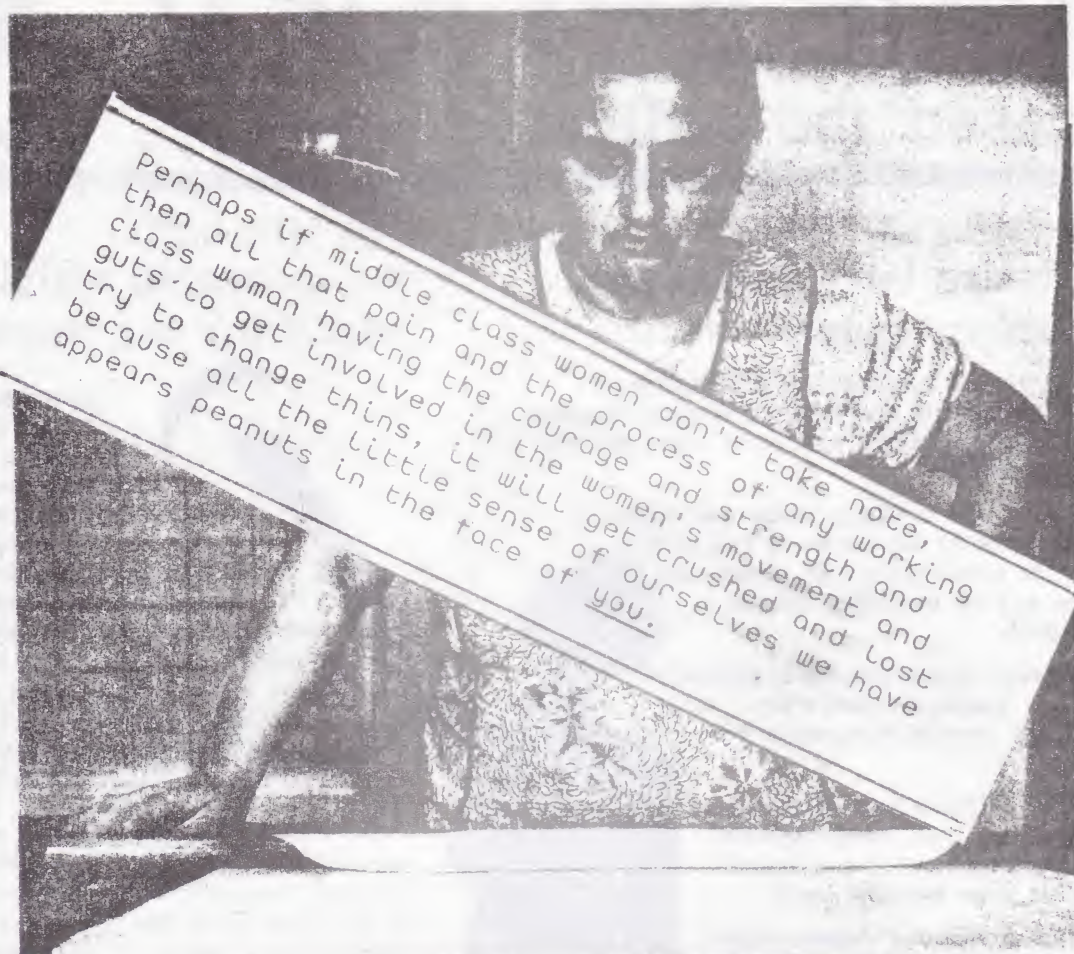 perhaps if middle class women don't take note,
then all that pain and the process of any working
class woman having the courage and strength and
guts to get involved in the women's movement and
try to change things, it will get crushed and lost
because all the little sense of ourselves we have
appears peanuts in the face of you.